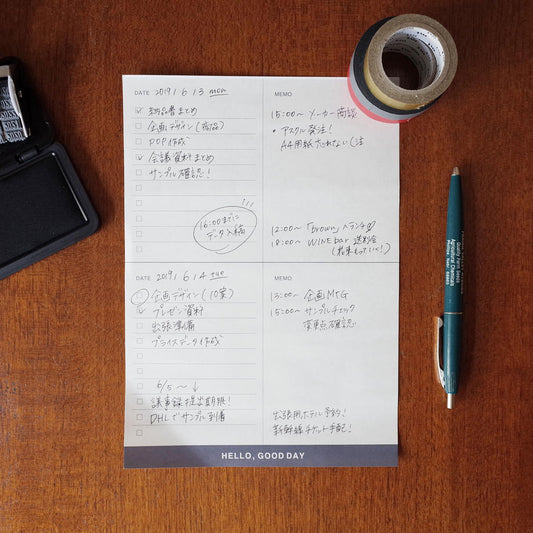 DATE 2019 / 6 / 3 mon
納品書まとめ
企画デザイン(商品)
POP作成
会議資料まとめ
サンプル確認!
16:00までに
データ入稿
MEMO
15:00〜 メーカー商談
• アスクル発注!
A4用紙
12:00〜 「brown」へランチ
18:00〜 WINE bar 送別会
DATE 2019 / 6 / 4 tue
企画デザイン(10案)
プレゼン資料
出張準備
プライスデータ作成
6/5〜 ↓
議事録提出期限!
DHLでサンプル到着
MEMO
13:00〜 企画MTG
15:00〜 サンプルチェック
変更点確認
出張用ホテル予約!
新幹線チケット手配!
HELLO, GOOD DAY
Agricultural Chemicals